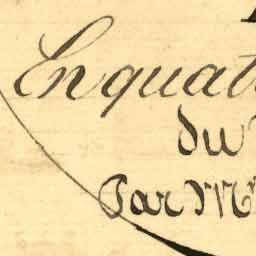 En quat
du
Par Mr